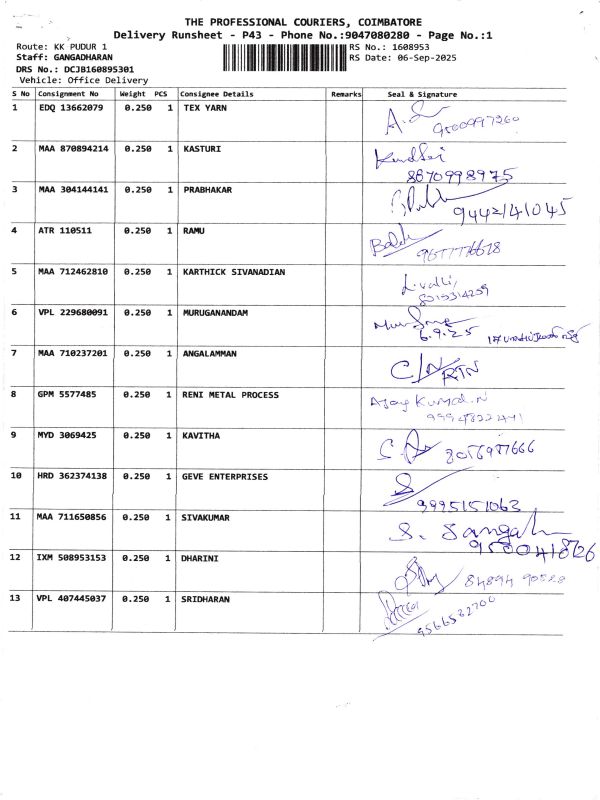 THE PROFESSIONAL COURIERS, COIMBATORE
Delivery Runsheet - P43 - Phone No.:9047080280 - Page No.:1
Route: KK PUDUR 1 RS No.: 1608953
Staff: GANGADHARAN RS Date: 06-Sep-2025
DRS No.: DCJB160895301
Vehicle: Office Delivery
S No Consignment No Weight PCS Consignee Details Remarks Seal & Signature
1 EDQ 13662079 0.250 1 TEX YARN
2 MAA 870894214 0.250 1 KASTURI
8870998975
3 MAA 304144141 0.250 1 PRABHAKAR
9442141045
4 ATR 110511 0.250 1 RAMU
5 MAA 712462810 0.250 1 KARTHICK SIVANADIAN
6 VPL 229680091 0.250 1 MURUGANANDAM
6.9.25
7 MAA 710237201 0.250 1 ANGALAMMAN C/N RTN
8 GPM 5577485 0.250 1 RENI METAL PROCESS Ajay Kumar.N
9 MYD 3069425 0.250 1 KAVITHA 8056977666
10 HRD 362374138 0.250 1 GEVE ENTERPRISES
9995151063
11 MAA 711650856 0.250 1 SIVAKUMAR
12 IXM 508953153 0.250 1 DHARINI 84894 90528
13 VPL 407445037 0.250 1 SRIDHARAN
9566532700